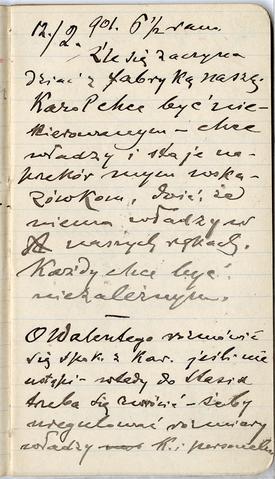 12./2. 901. 6½ ram.
Źle się zaczyna
dziać z fabryką naszą.
Karol chce być nie-
kierowanym – chce
władzy i staje na-
przekór mym wska-
zówkom, dość, że
niema władzy w
naszych rękach.
Każdy chce być
niezależnym.
O Walentego rozmówić
się spok. z Kar. jeśli nie
ustąpi – wtedy do Stasia
trzeba się zwrócić – żeby
uregulować rozmiary
władzy K. i personelu